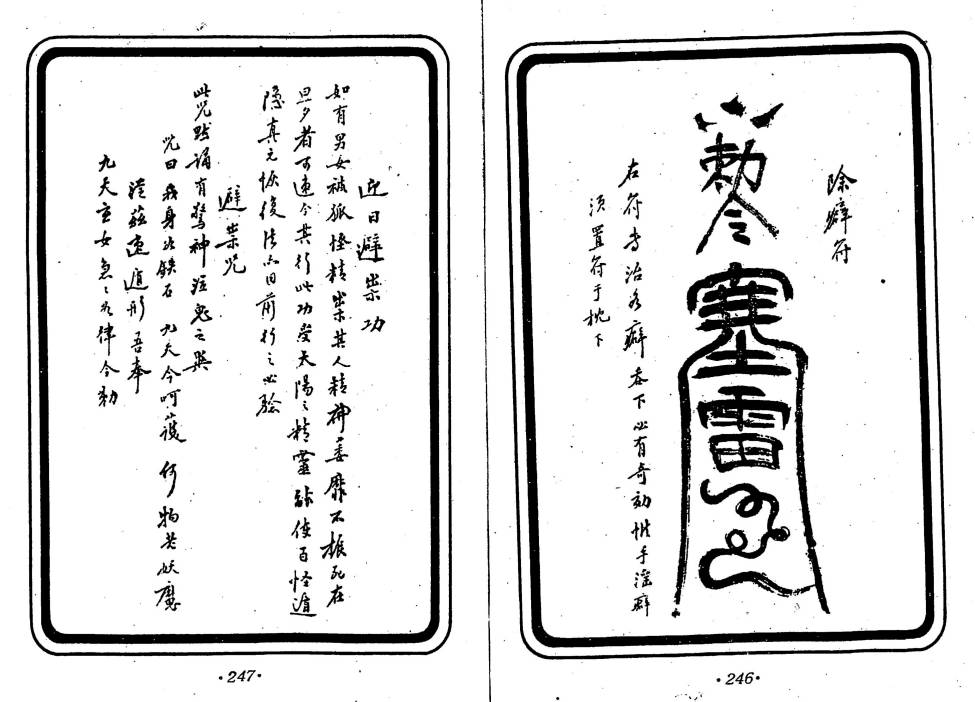 除癖符
敕令
雷
右符专治各癖吞下必有奇効惟手淫癖
须置符于枕下
·246·
近日避祟功
如有男女被狐怪精祟其人精神委靡不振死在
旦夕者可速令其行此功受太阳之精灵能使百怪遁
隐真元恢复法亦日前行之必验
避祟咒
此咒默诵有惊神泣鬼之异
咒曰 我身如铁石 九天令呵护 何物若妖魔
速遁形 吾奉
九天玄女急急如律令勅
·247·